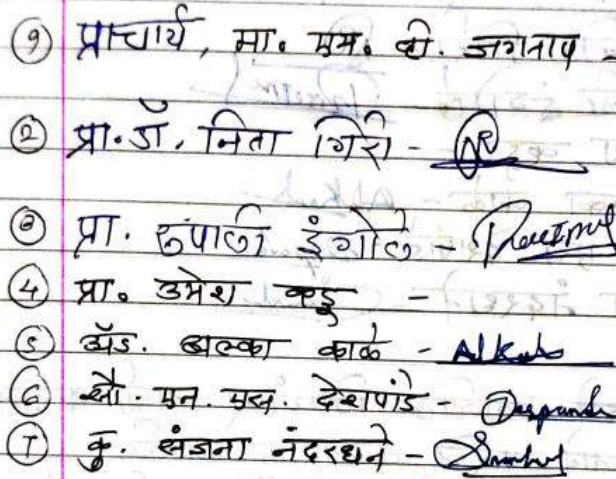 ① प्राचार्य, मा. एम. व्ही. जगताप -
② प्रा. डॉ. निता गिरी -
③ प्रा. रुपाली इंगोले -
④ प्रा. उमेश कडू -
⑤ अ‍ॅड. अल्का काळे - AlKale
⑥ सौ. एन. एस. देशपांडे - Despande
⑦ कु. संजना नंदरधने -